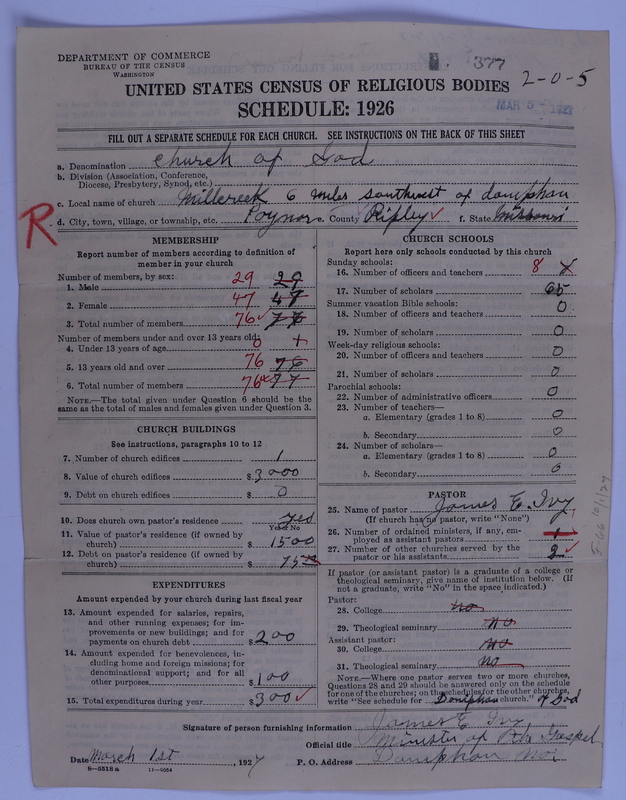 DEPARTMENT OF COMMERCE
BUREAU OF THE CENSUS
WASHINGTON
377
2-0-5
UNITED STATES CENSUS OF RELIGIOUS BODIES
MAR 5 - 1927
SCHEDULE: 1926
FILL OUT A SEPARATE SCHEDULE FOR EACH CHURCH. SEE INSTRUCTIONS ON THE BACK OF THIS SHEET
a. Denomination Church of God
b. Division (Association, Conference, Diocese, Presbytery, Synod, etc.)
c. Local name of church Millcreek 6 miles southwest of doniphan
R d. City, town, village, or township, etc. Poynor e. County Ripley ✓ f. State Missouri
MEMBERSHIP
Report number of members according to definition of member in your church
Number of members, by sex:
1. Male 29 29
2. Female 47 47
3. Total number of members 76 ✓
Number of members under and over 13 years old:
4. Under 13 years of age 0
5. 13 years old and over 76 76
6. Total number of members 76 77
NOTE.—The total given under Question 6 should be the same as the total of males and females given under Question 3.
CHURCH BUILDINGS
See instructions, paragraphs 10 to 12
7. Number of church edifices 1
8. Value of church edifices $ 3000
9. Debt on church edifices $ 0
10. Does church own pastor's residence yes
Yes or No
11. Value of pastor's residence (if owned by church) $ 1500
12. Debt on pastor's residence (if owned by church) $ 75
EXPENDITURES
Amount expended by your church during last fiscal year
13. Amount expended for salaries, repairs, and other running expenses; for improvements or new buildings; and for payments on church debt $ 200
14. Amount expended for benevolences, including home and foreign missions; for denominational support; and for all other purposes $ 100
15. Total expenditures during year $ 300 ✓
CHURCH SCHOOLS
Report here only schools conducted by this church
Sunday schools:
16. Number of officers and teachers 8
17. Number of scholars 65
Summer vacation Bible schools:
18. Number of officers and teachers 0
19. Number of scholars 0
Week-day religious schools:
20. Number of officers and teachers 0
21. Number of scholars 0
Parochial schools:
22. Number of administrative officers 0
23. Number of teachers—
a. Elementary (grades 1 to 8) 0
b. Secondary 0
24. Number of scholars—
a. Elementary (grades 1 to 8) 0
b. Secondary 0
PASTOR
25. Name of pastor James E. Ivy
(If church has no pastor, write "None")
26. Number of ordained ministers, if any, employed as assistant pastors 1
27. Number of other churches served by the pastor or his assistants 2 ✓
If pastor (or assistant pastor) is a graduate of a college or theological seminary, give name of institution below. (If not a graduate, write "No" in the space indicated.)
Pastor:
28. College no
29. Theological seminary no
Assistant pastor:
30. College no
31. Theological seminary no
NOTE.—Where one pastor serves two or more churches, Questions 28 and 29 should be answered only on the schedule for one of the churches; on the schedules for the other churches, write "See schedule for Doniphan church." of God
Signature of person furnishing information James E Ivy
Official title Minister of the Gospel
Date March 1st, 1927 P. O. Address Doniphan Mo.
8-5518a 11-9054